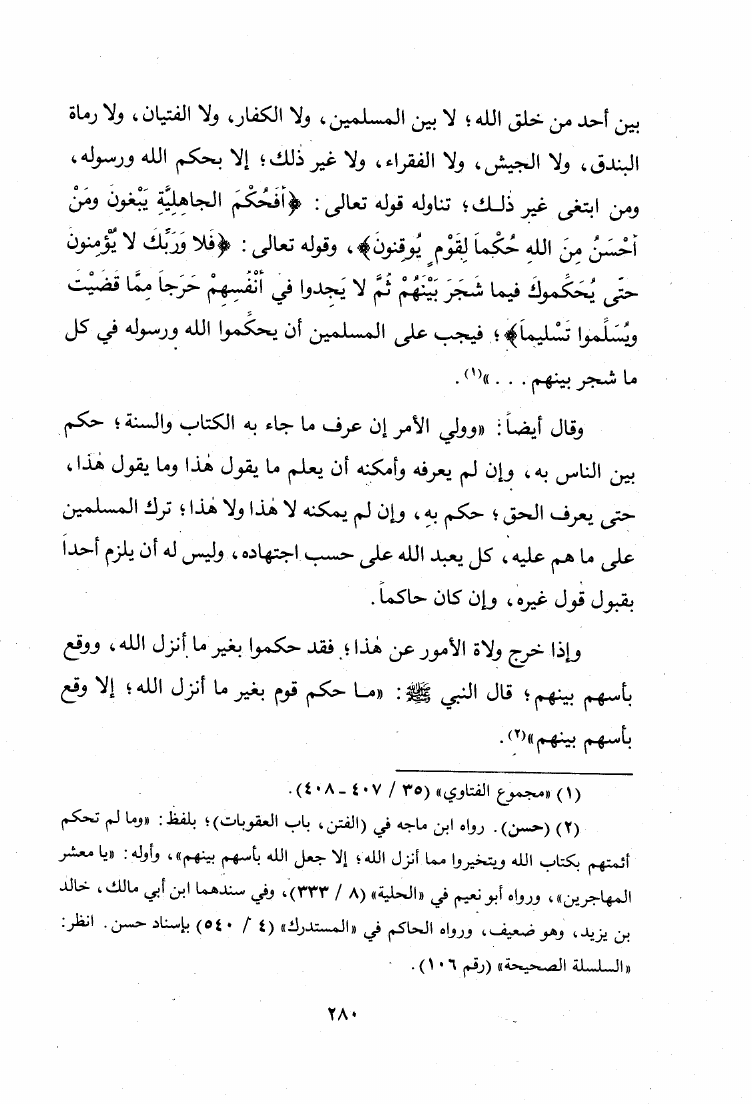 بين أحد من خلق الله؛ لا بين المسلمين، ولا الكفار، ولا الفتيان، ولا رماة
البندق، ولا الجيش، ولا الفقراء، ولا غير ذلك؛ إلا بحكم الله ورسوله،
ومن ابتغى غير ذلك؛ تناوله قوله تعالى: ﴿أَفَحُكْمَ الجاهِليَّةِ يَبْغونَ ومَنْ
أَحْسَنُ مِنَ اللهِ حُكْماً لِقَوْمٍ يُوقنونَ﴾، وقوله تعالى: ﴿فَلا وَرَبِّكَ لا يُؤمِنونَ
حتَّى يُحَكِّموكَ فيما شَجَرَ بَيْنَهُمْ ثُمَّ لا يَجِدوا في أَنْفُسِهِمْ حَرَجاً مِمَّا قَضَيْتَ
ويُسَلِّموا تَسْليماً﴾؛ فيجب على المسلمين أن يحكِّموا الله ورسوله في كل
ما شجر بينهم . . . »(١).
وقال أيضاً: «وولي الأمر إن عرف ما جاء به الكتاب والسنة؛ حكم
بين الناس به، وإن لم يعرفه وأمكنه أن يعلم ما يقول هٰذا وما يقول هٰذا،
حتى يعرف الحق؛ حكم به، وإن لم يمكنه لا هٰذا ولا هٰذا؛ ترك المسلمين
على ما هم عليه، كل يعبد الله على حسب اجتهاده، وليس له أن يلزم أحداً
بقبول قول غيره، وإن كان حاكماً.
وإذا خرج ولاة الأمور عن هٰذا؛ فقد حكموا بغير ما أنزل الله، ووقع
بأسهم بينهم؛ قال النبي ﷺ: «ما حكم قوم بغير ما أنزل الله؛ إلا وقع
بأسهم بينهم»(٢).
(١) «مجموع الفتاوي» (٣٥ / ٤٠٧ ـ ٤٠٨).
(٢) (حسن). رواه ابن ماجه في (الفتن، باب العقوبات)؛ بلفظ: «وما لم تحكم
أئمتهم بكتاب الله ويتخيروا مما أنزل الله؛ إلا جعل الله بأسهم بينهم»، وأوله: «يا معشر
المهاجرين»، ورواه أبو نعيم في «الحلية» (٨ / ٣٣٣)، وفي سندهما ابن أبي مالك، خالد
بن يزيد، وهو ضعيف، ورواه الحاكم في «المستدرك» (٤ / ٥٤٠) بإسناد حسن. انظر:
«السلسلة الصحيحة» (رقم ١٠٦).
٢٨٠